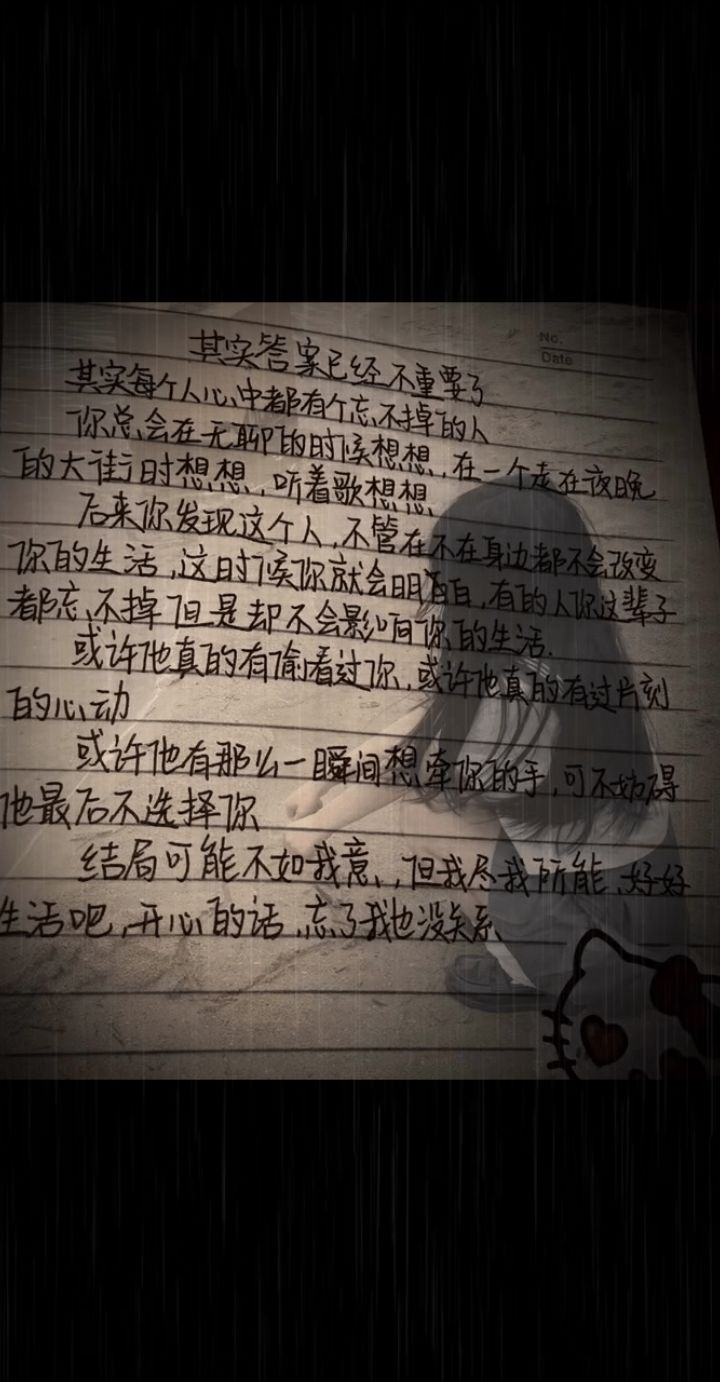 No.
Date
其实答案已经不重要了
其实每个人心中都有个忘不掉的人
你总会在无聊的时候想想,在一个走在夜晚
的大街时想想,听着歌想想、
后来你发现这个人,不管在不在身边都不会改变
你的生活,这时候你就会明白,有的人你这辈子
都忘不掉但是却不会影响你的生活.
或许他真的有偷看过你,或许他真的有过片刻
的心动
或许他有那么一瞬间想牵你的手,可不妨碍
他最后不选择你
结局可能不如我意,但我尽我所能、好好
生活吧,开心的话,忘了我也没关系、